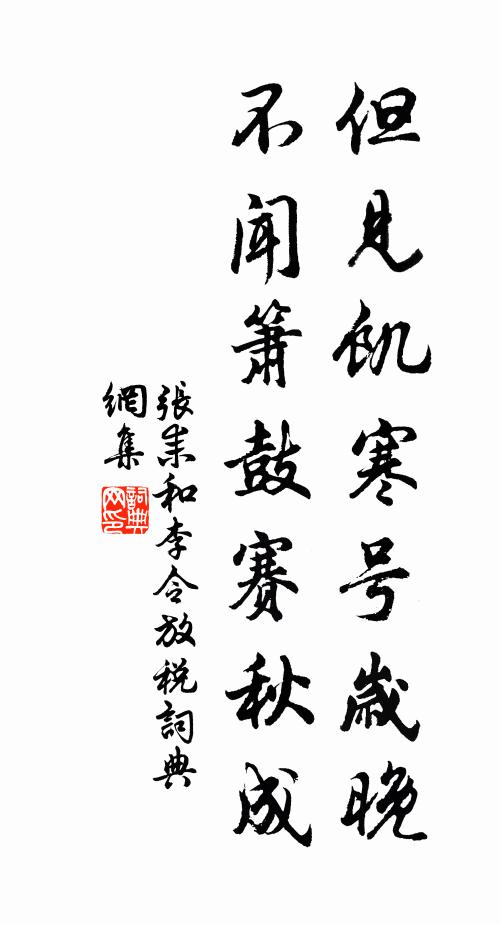 但見飢寒号歲晚
不闻簫鼓賽秋成
張耒和李令放税詞典
網集
詞典网印